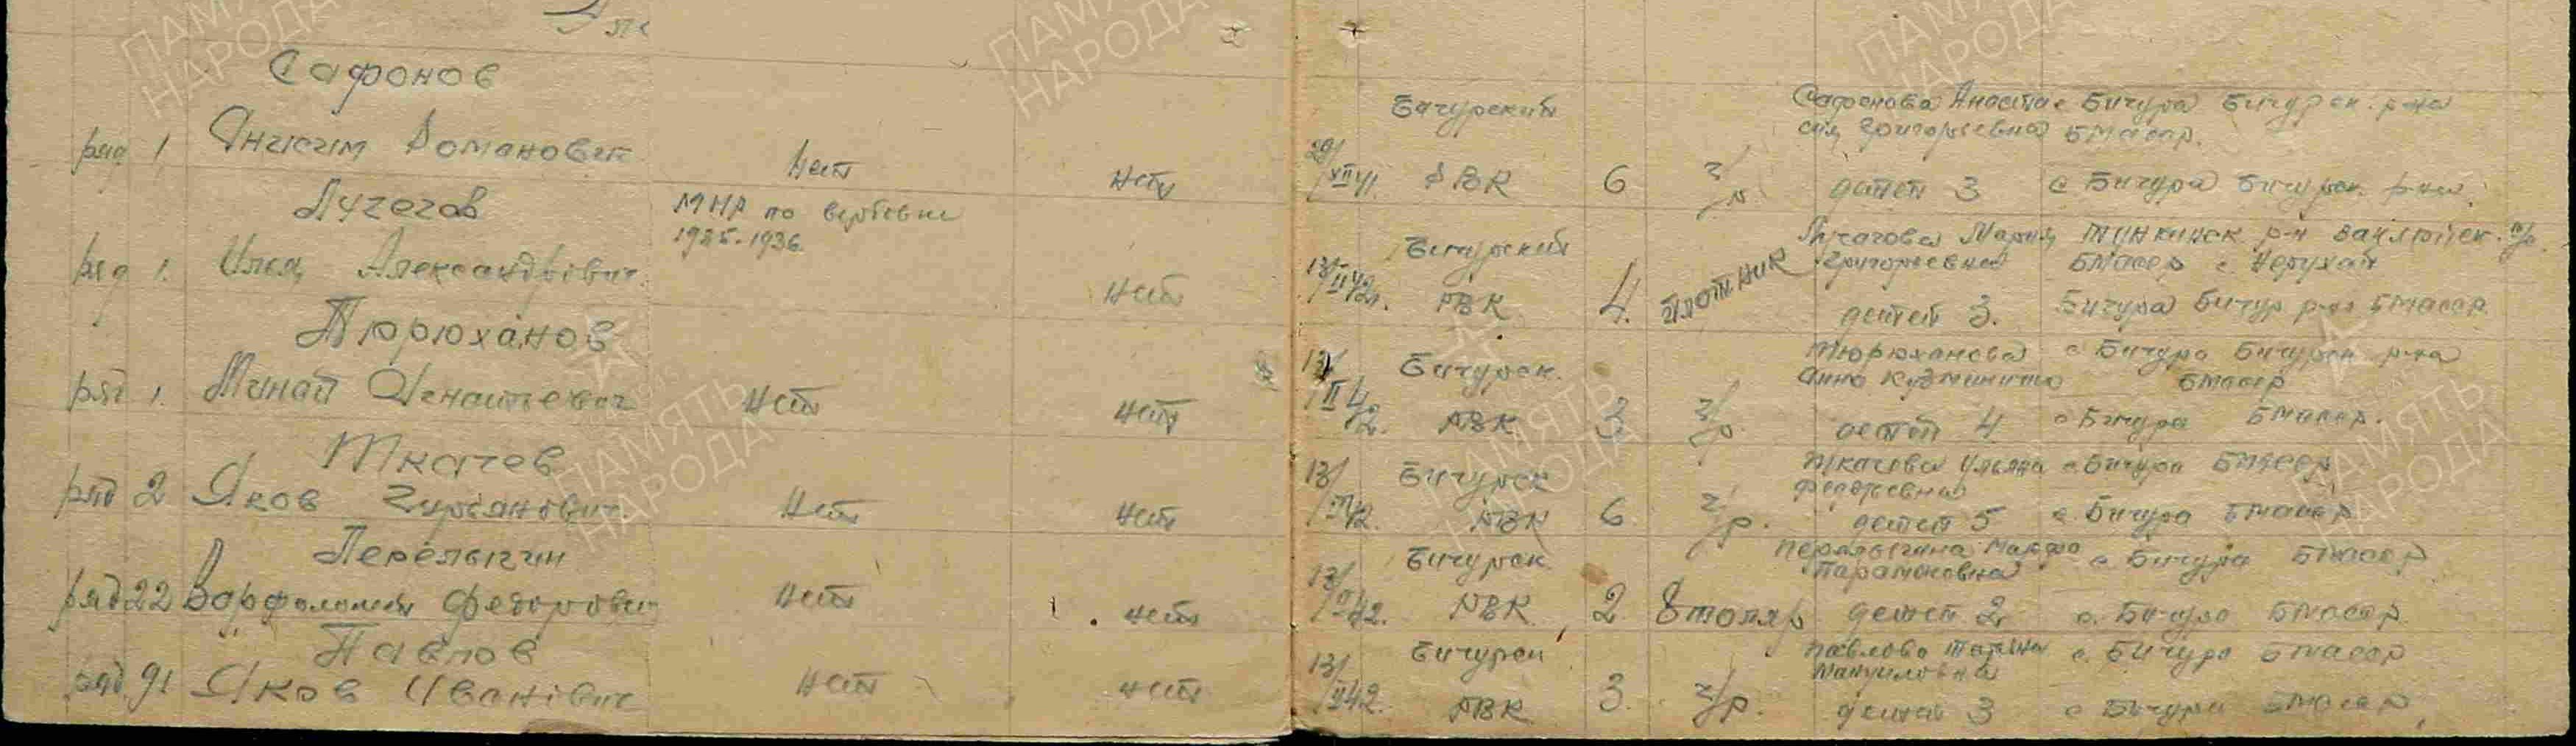 Сафонов
ряд 1 Анисим Романович нет нет 29/XII 41. Бичурский РВК 6 ч/р Сафонова Анаста- с Бичура Бичурск. р-на
сия Григорьевна БМАССР.
детей 3 с Бичура Бичурск. р-на.
Лучегов МНР по вербовке
1925-1936.
ряд 1. Илья Александрович нет 13/II 42г. Бичурский РВК 4. плотник Мария Тункинск р-н
Григорьевна БМАССР с
детей 3. Бичура Бичур р-на БМАССР
Тюрюханов
ряд 1. Минай Игнатьевич нет нет 13/II 42. Бичурск. РВК 3. ч/р. Тюрюханова с Бичура Бичурск р-на
Анна БМАССР
детей 4 с Бичура БМАССР.
Ткачев
ряд 2 Яков нет нет 13/II 42. Бичурск РВК 6 ч/р. Ткачева Ульяна с Бичура БМАССР
детей 5 с. Бичура БМАССР
Перелыгин
ряд 22 Варфоломей Федорович нет нет 13/II 42. Бичурск. РВК 2. столяр Перелыгина Марфа с. Бичура БМАССР
Парамоновна
детей 2 с. Бичура БМАССР
Павлов
ряд. 91 Яков Иванович нет нет 13/II 42. Бичурск РВК 3. ч/р. Павлова с. Бичура БМАССР
Мануиловна
детей 3 с Бичура БМАССР
ПАМЯТЬ
НАРОДА